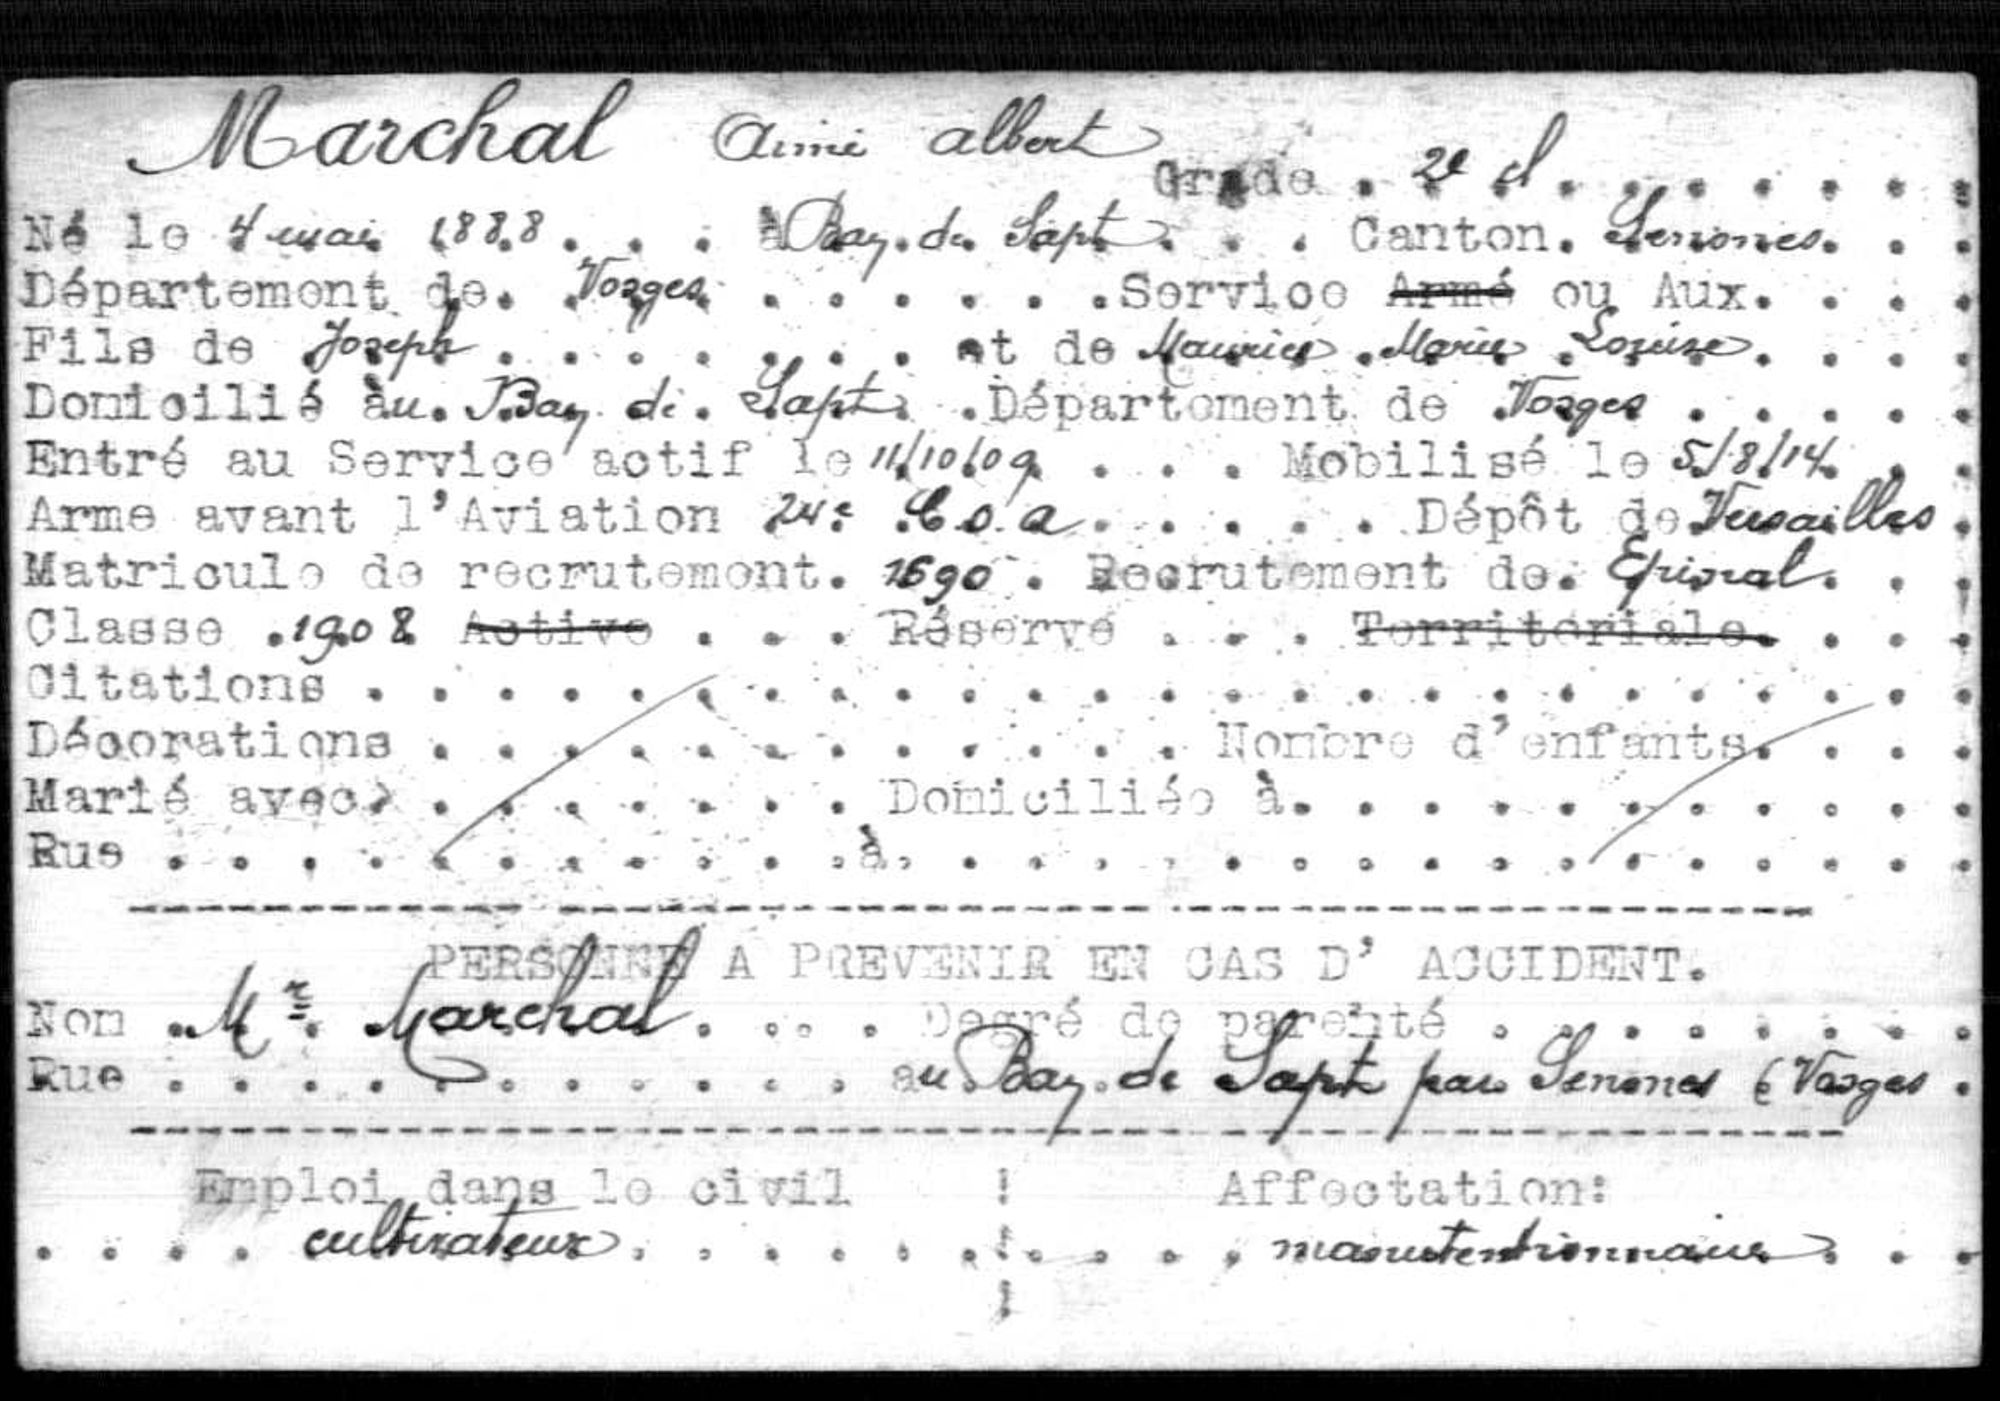 Marchal Aimé Albert
Grade . 2e cl . . . . . . .
Né le 4 mai 1888 . . . à Bay de Sapt . . . Canton. Senones. . .
Département de. Vosges . . . . . . Service Armé ou Aux. . . .
Fils de Joseph . . . . . . . et de Maurice Marie Louise. . . .
Domicilié àu. Bay de Sapt . .Département de Vosges . . . . .
Entré au Service actif le 11/10/09 . . . Mobilisé le 5/8/14 . .
Arme avant l'Aviation 24e C.o.a . . . . . Dépôt de Versailles .
Matricule de recrutement. 1690 . Recrutement de. Epinal. . .
Classe .1908 Active . . . Réserve . . . Territoriale. . . .
Citations . . . . . . . . . . . . . . . . . . . . . . . .
Décorations . . . . . . . . . . . . Nombre d'enfants. . . .
Marié avec . . . . . . . Domiciliée à. . . . . . . . . . .
Rue . . . . . . . . . . .à. . . . . . . . . . . . . . . .
PERSONNE A PREVENIR EN CAS D' ACCIDENT.
Nom . Mr. Marchal . . . . Degré de parenté . . . . . . . .
Rue . . . . . . . . . . . au Bay de Sapt par Senones (Vosges .
Emploi dans le civil ! Affectation:
. . . . cultivateur . . . . . . ! . . . manutentionnaire . . .
!